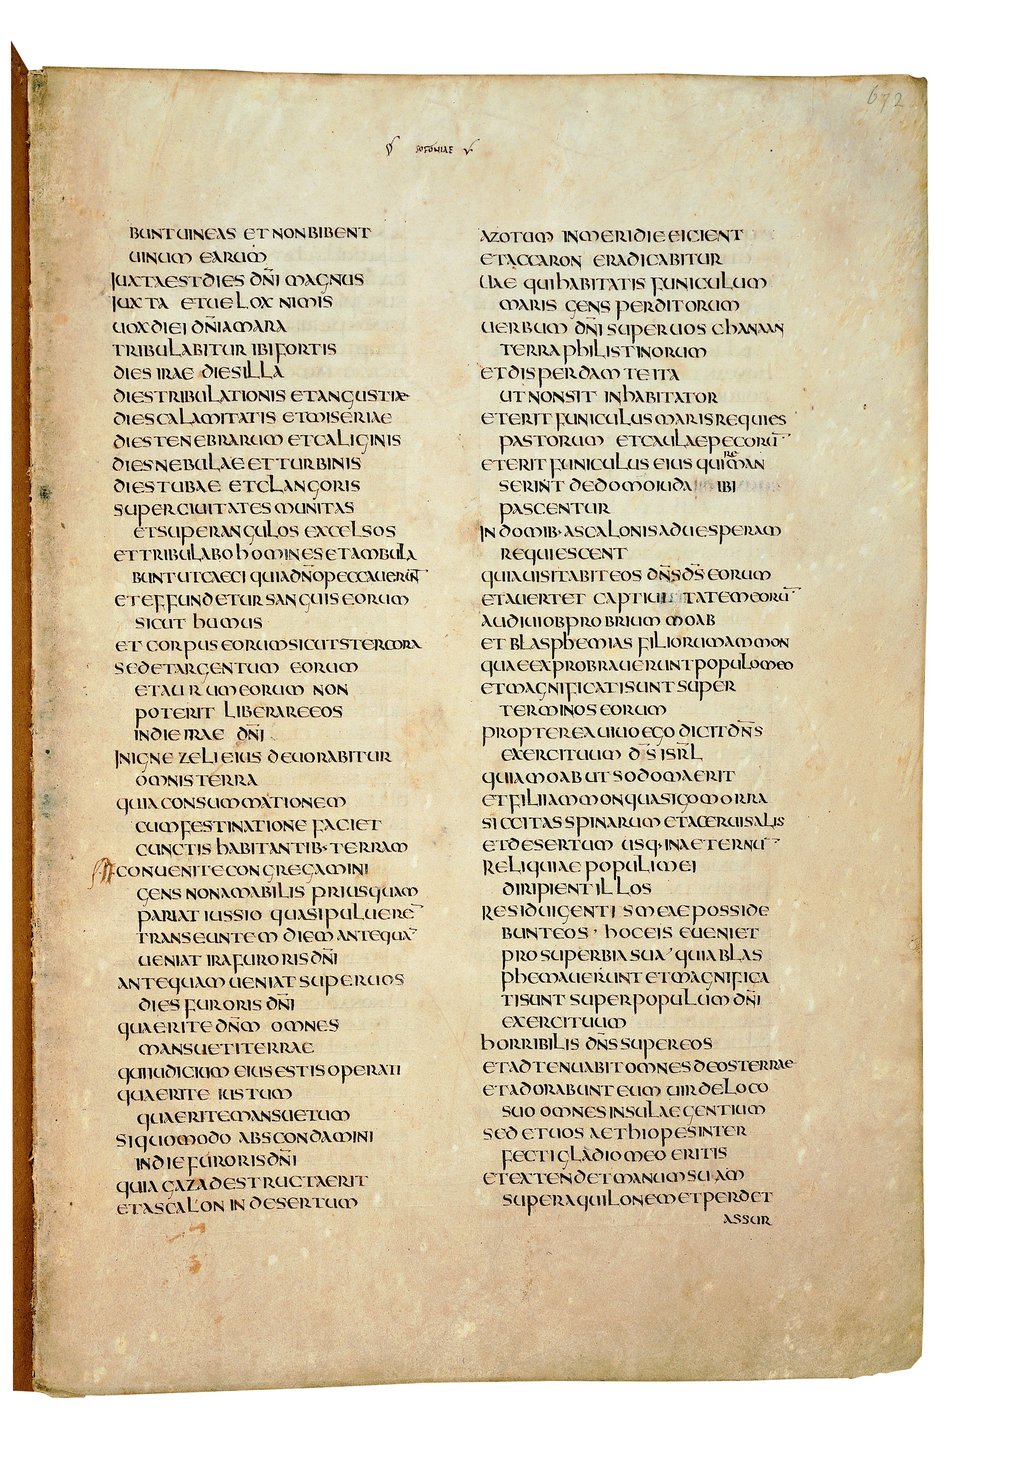 672
SOFONIAE
BUNT UINEAS ET NON BIBENT
UINUM EARUM
IUXTA EST DIES DN̄I MAGNUS
IUXTA ET UELOX NIMIS
UOX DIEI DN̄I AMARA
TRIBULABITUR IBI FORTIS
DIES IRAE DIES ILLA
DIES TRIBULATIONIS ET ANGUSTIAE
DIES CALAMITATIS ET MISERIAE
DIES TENEBRARUM ET CALIGINIS
DIES NEBULAE ET TURBINIS
DIES TUBAE ET CLANGORIS
SUPER CIUITATES MUNITAS
ET SUPER ANGULOS EXCELSOS
ET TRIBULABO HOMINES ET AMBULA
BUNT UT CAECI QUIA DN̄O PECCAUERUNT
ET EFFUNDETUR SANGUIS EORUM
SICUT HUMUS
ET CORPUS EORUM SICUT STERCORA
SED ET ARGENTUM EORUM
ET AURUM EORUM NON
POTERIT LIBERARE EOS
IN DIE IRAE DN̄I
IN IGNE ZELI EIUS DEUORABITUR
OMNIS TERRA
QUIA CONSUMMATIONEM
CUM FESTINATIONE FACIET
CUNCTIS HABITANTIB· TERRAM
CONUENITE CONGREGAMINI
GENS NON AMABILIS PRIUSQUAM
PARIAT IUSSIO QUASI PULUERE̅
TRANSEUNTEM DIEM ANTEQUA̅
UENIAT IRA FURORIS DN̄I
ANTEQUAM UENIAT SUPER UOS
DIES FURORIS DN̄I
QUAERITE DN̄M OMNES
MANSUETI TERRAE
QUI IUDICIUM EIUS ESTIS OPERATI
QUAERITE IUSTUM
QUAERITE MANSUETUM
SI QUOMODO ABSCONDAMINI
IN DIE FURORIS DN̄I
QUIA GAZA DESTRUCTA ERIT
ET ASCALON IN DESERTUM
AZOTUM IN MERIDIE EICIENT
ET ACCARON ERADICABITUR
UAE QUI HABITATIS FUNICULUM
MARIS GENS PERDITORUM
UERBUM DN̄I SUPER UOS CHANAAN
TERRA PHILISTINORUM
ET DISPERDAM TE ITA
UT NON SIT INHABITATOR
ET ERIT FUNICULUS MARIS REQUIES
PASTORUM ET CAULAE PECORU̅
ET ERIT FUNICULUS EIUS QUI REMAN
SERINT DE DOMO IUDA IBI
PASCENTUR
IN DOMIB· ASCALONIS AD UESPERAM
REQUIESCENT
QUIA UISITABIT EOS DN̄S DS̄ EORUM
ET AUERTET CAPTIUITATEM EORU̅
AUDIUI OBPROBRIUM MOAB
ET BLASPHEMIAS FILIORUM AMMON
QUAE EXPROBRAUERUNT POPULO MEO
ET MAGNIFICATI SUNT SUPER
TERMINOS EORUM
PROPTEREA UIUO EGO DICIT DN̄S
EXERCITUUM DS̄ ISRL̄
QUIA MOAB UT SODOMA ERIT
ET FILII AMMON QUASI GOMORRA
SICCITAS SPINARUM ET ACERUI SALIS
ET DESERTUM USQ· IN AETERNU̅
RELIQUIAE POPULI MEI
DIRIPIENT ILLOS
RESIDUI GENTIS MEAE POSSIDE
BUNT EOS · HOC EIS EUENIET
PRO SUPERBIA SUA · QUIA BLAS
PHEMAUERUNT ET MAGNIFICA
TI SUNT SUPER POPULUM DN̄I
EXERCITUUM
HORRIBILIS DN̄S SUPER EOS
ET ADTENUABIT OMNES DEOS TERRAE
ET ADORABUNT EUM UIRI DE LOCO
SUO OMNES INSULAE GENTIUM
SED ET UOS AETHIOPES INTER
FECTI GLADIO MEO ERITIS
ET EXTENDET MANUM SUAM
SUPER AQUILONEM ET PERDET
ASSUR